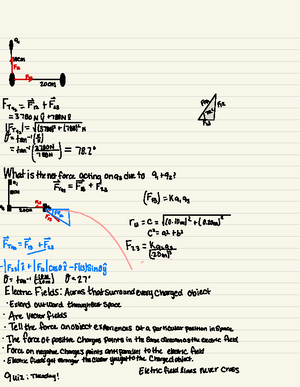 q₁
10cm
F₁₂
F₂₃
20cm
F_Tq₂ = F₁₂ + F₂₃
= 3780N ŷ + 788N x̂
|F_Tq₂| = √(3780)² + (788)² N
θ = tan⁻¹(y/x)
= tan⁻¹(3780N/788N) = 78.2°
F₁₂
F₂₃
What is the net force acting on q₃ due to q₁ + q₂?
F_Tq₃ = F₁₃ + F₂₃
|F₁₃| = Kq₁q₃
20cm
r₁₃ = c = √(0.10m)² + (0.20m)²
c² = a² + b²
F_Tq₃ = F₁₃ + F₂₃
F₂₃ = Kq₂q₃/(.20m)²
θ = tan⁻¹ θ = 27°
Electric Fields: Auras that surround every charged object
· Extend outward throughout space
· Are vector fields
· Tell the force an object experiences at a particular position in space
· The force of positive charges points in the same direction as the electric field
· Force on negative charges points anti parallel to the electric field
· Electric fields get stronger the closer you get to the charged object.
Electric field lines never cross
Quiz: Tuesday!